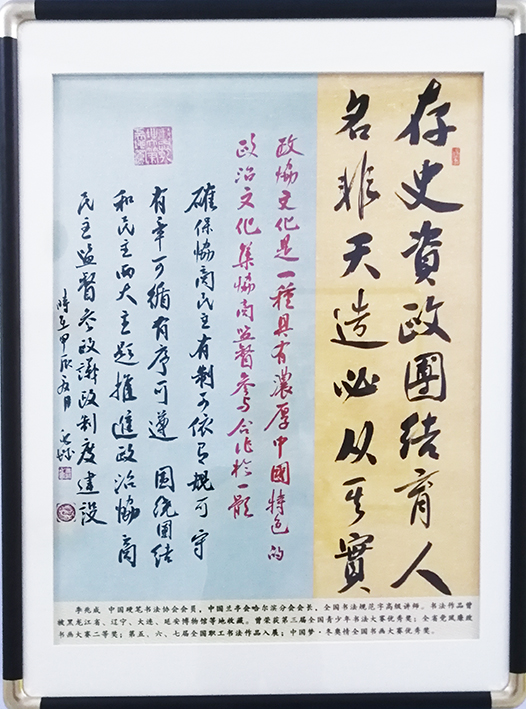 存史資政團结育人
名非天造必从其實
政协文化是一種具有濃厚中國特色的
政治文化集协商监督参与合作於一體
確保协商民主有制可依有规可守
有章可循有序可遵 围绕團结
和民主两大主题推進政治协商
民主监督参政議政制度建設
時在甲辰
李兆成 中国硬笔书法协会会员，中国兰亭会哈尔滨分会会长，全国书法规范字高级讲师。书法作品曾
被黑龙江省、辽宁、大连、延安博物馆等地收藏。曾荣获第三届全国青少年书法大赛优秀奖；全省党风廉政
书画大赛二等奖；第五、六、七届全国职工书法作品入展；中国梦·冬奥情全国书画大赛优秀奖。